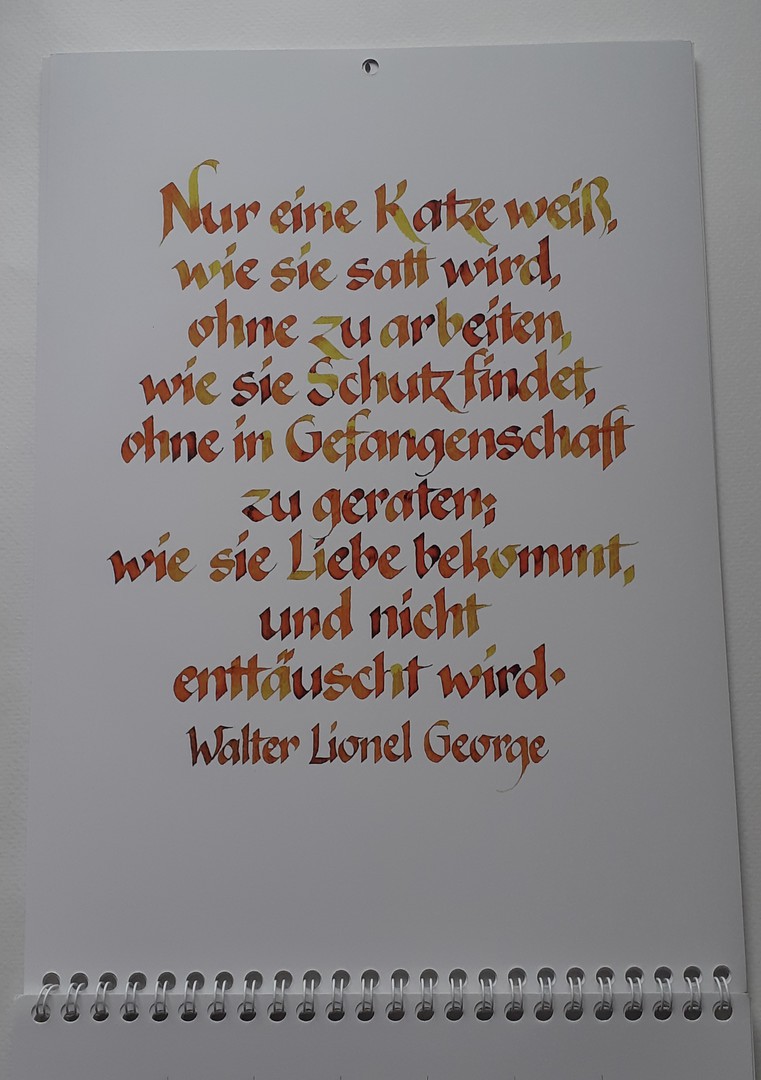 Nur eine Katze weiß,
wie sie satt wird,
ohne zu arbeiten,
wie sie Schutz findet,
ohne in Gefangenschaft
zu geraten;
wie sie Liebe bekommt,
und nicht
enttäuscht wird.
Walter Lionel George